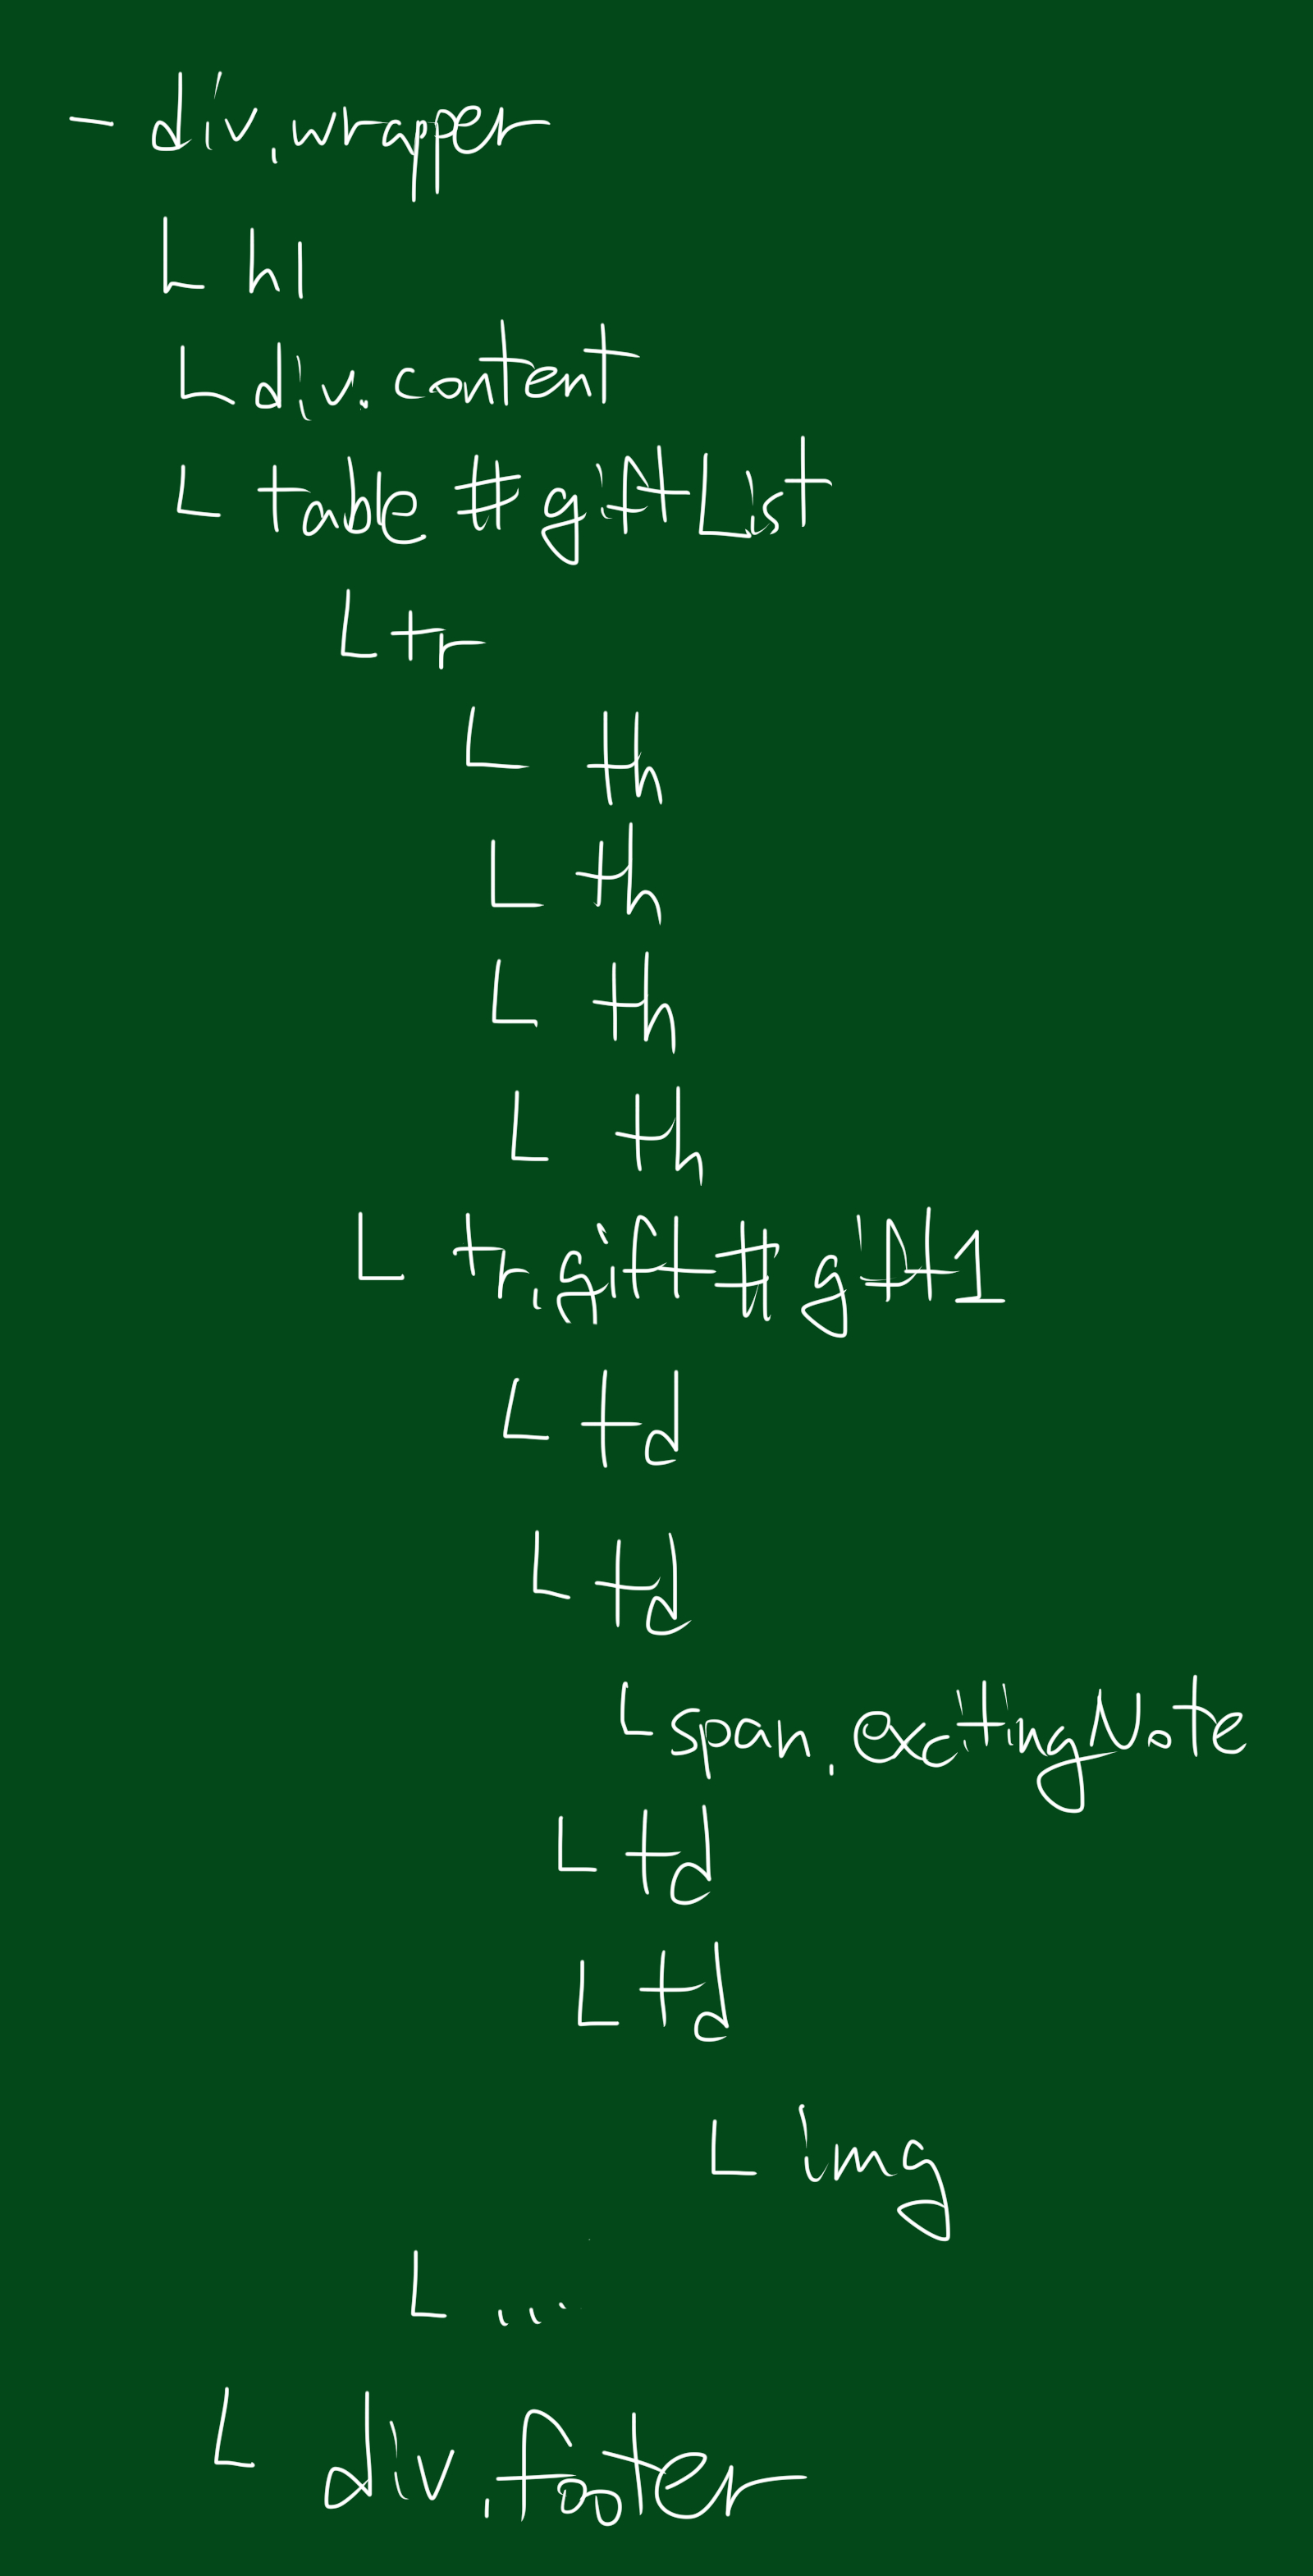 - div.wrapper
└ h1
└ div.content
└ table #giftList
└ tr
└ th
└ th
└ th
└ th
└ tr.gift#gift1
└ td
└ td
└ span.excitingNote
└ td
└ td
└ img
└ ...
└ div.footer